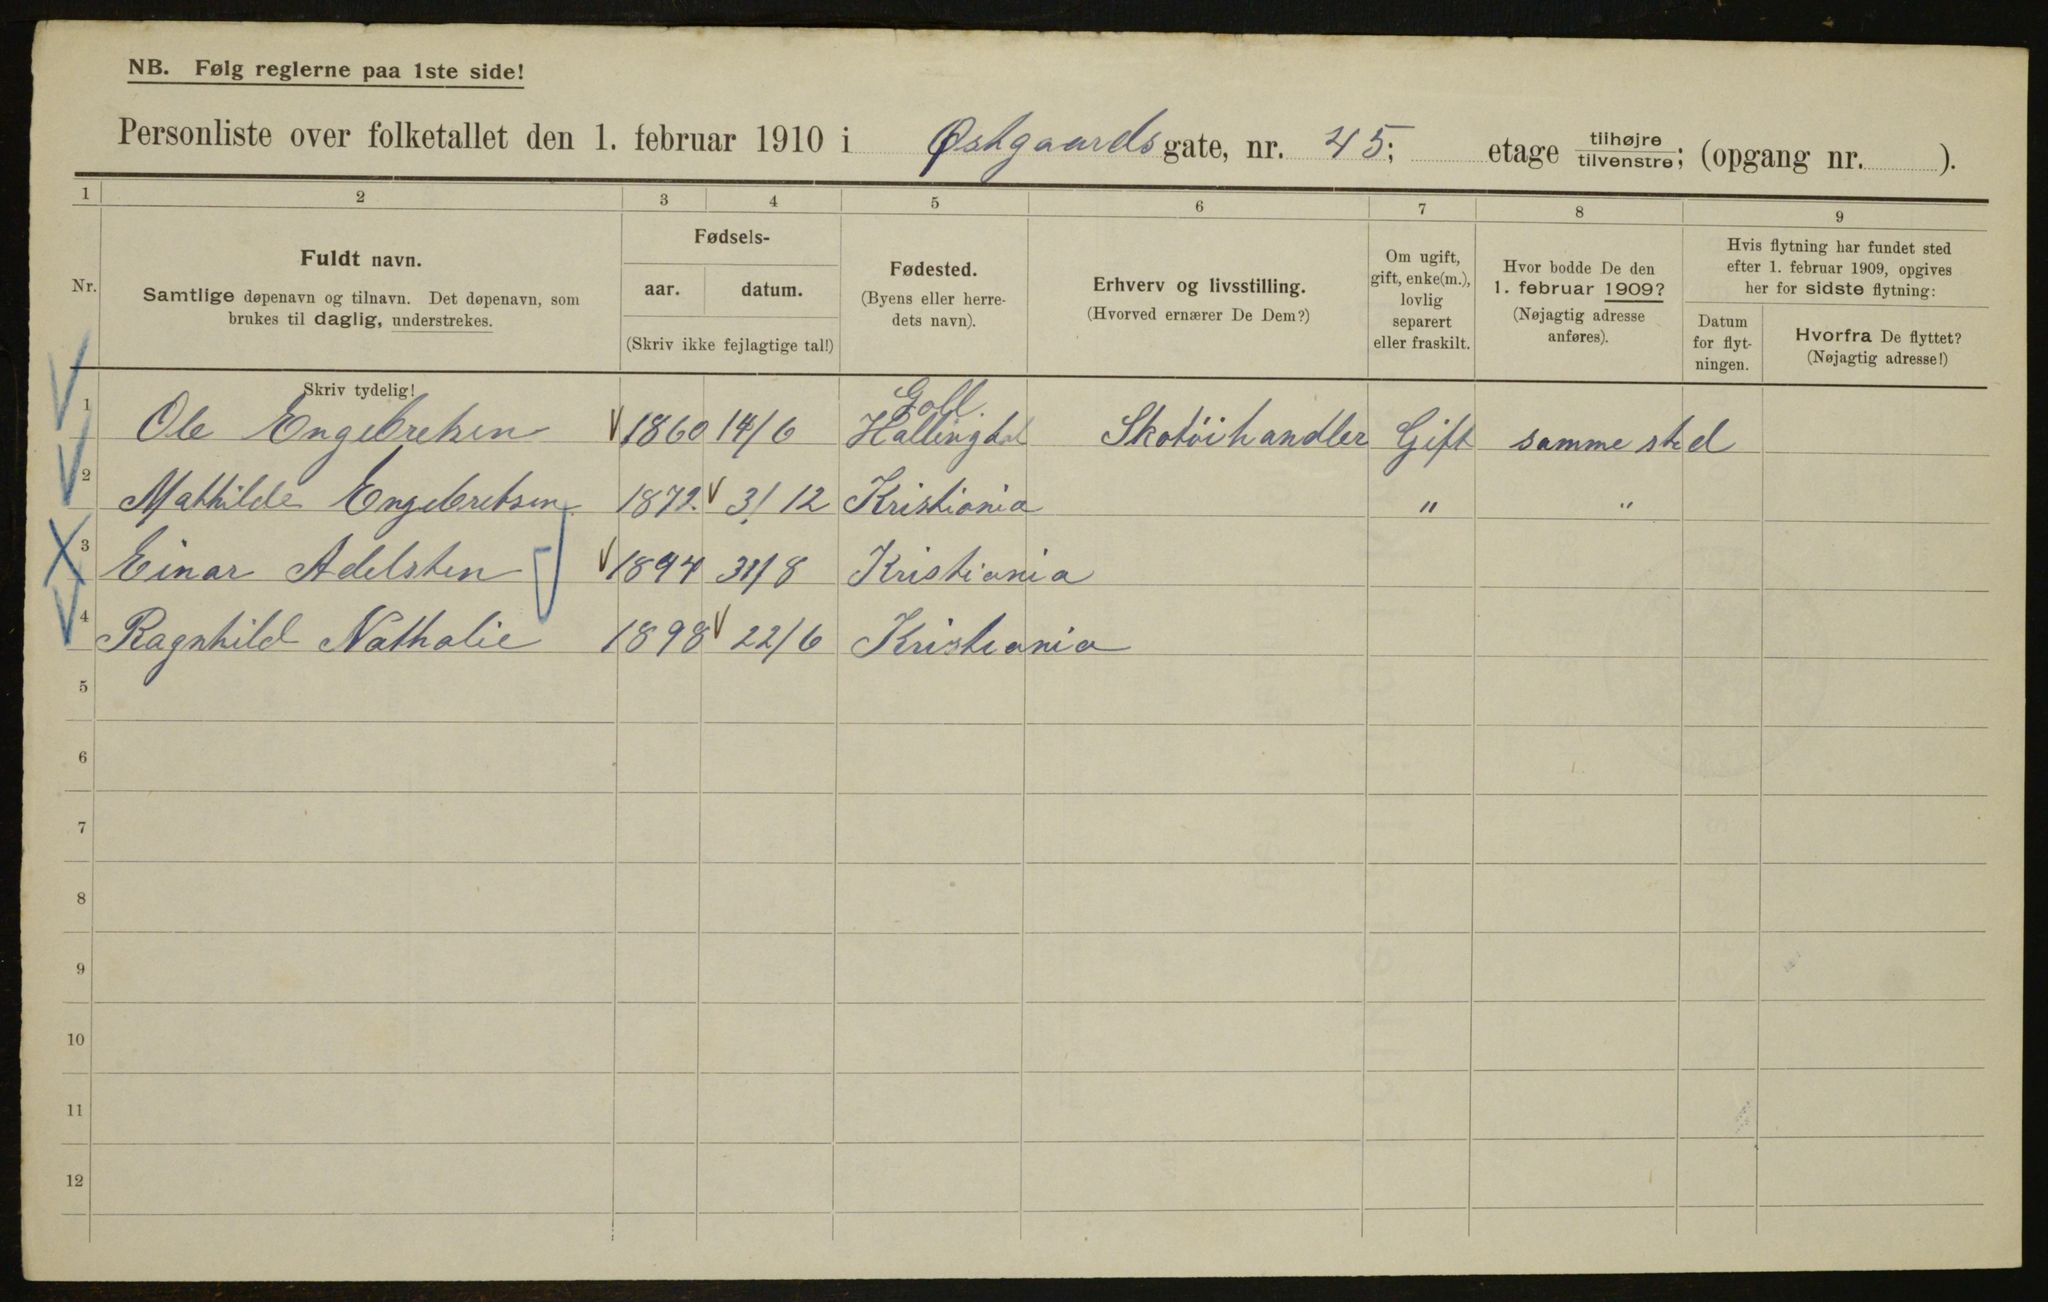 NB. Følg reglerne paa 1ste side!
Personliste over folketallet den 1. februar 1910 i Østgaards gate, nr. 45; etage tilhøjre tilvenstre; (opgang nr. ).
1 2 3 4 5 6 7 8 9
Nr.
Fuldt navn.
Samtlige døpenavn og tilnavn. Det døpenavn, som
brukes til daglig, understrekes.
Fødsels-
aar. datum.
(Skriv ikke fejlagtige tal!)
Fødested.
(Byens eller herre-
dets navn).
Erhverv og livsstilling.
(Hvorved ernærer De Dem?)
Om ugift,
gift, enke(m.),
lovlig
separert
eller fraskilt.
Hvor bodde De den
1. februar 1909?
(Nøjagtig adresse
anføres).
Hvis flytning har fundet sted
efter 1. februar 1909, opgives
her for sidste flytning:
Datum
for flyt-
ningen.
Hvorfra De flyttet?
(Nøjagtig adresse!)
Skriv tydelig!
Goll.
1 Ole Engebretsen 1860 14/6 Hallingdal Skotøihandler Gift samme sted
2 Mathilde Engebretsen 1872 31/12 Kristiania " "
3 Einar Adelsten 1894 31/8 Kristiania
4 Ragnhild Nathalie 1898 22/6 Kristiania
5
6
7
8
9
10
11
12